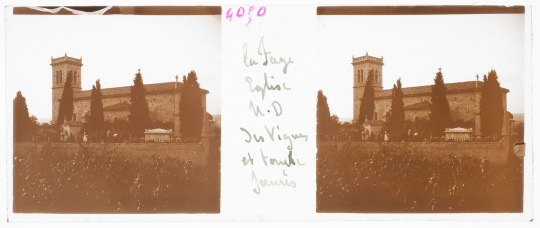 4090
la Fage
Eglise
N.D
des Vignes
et tombe
Jaurès